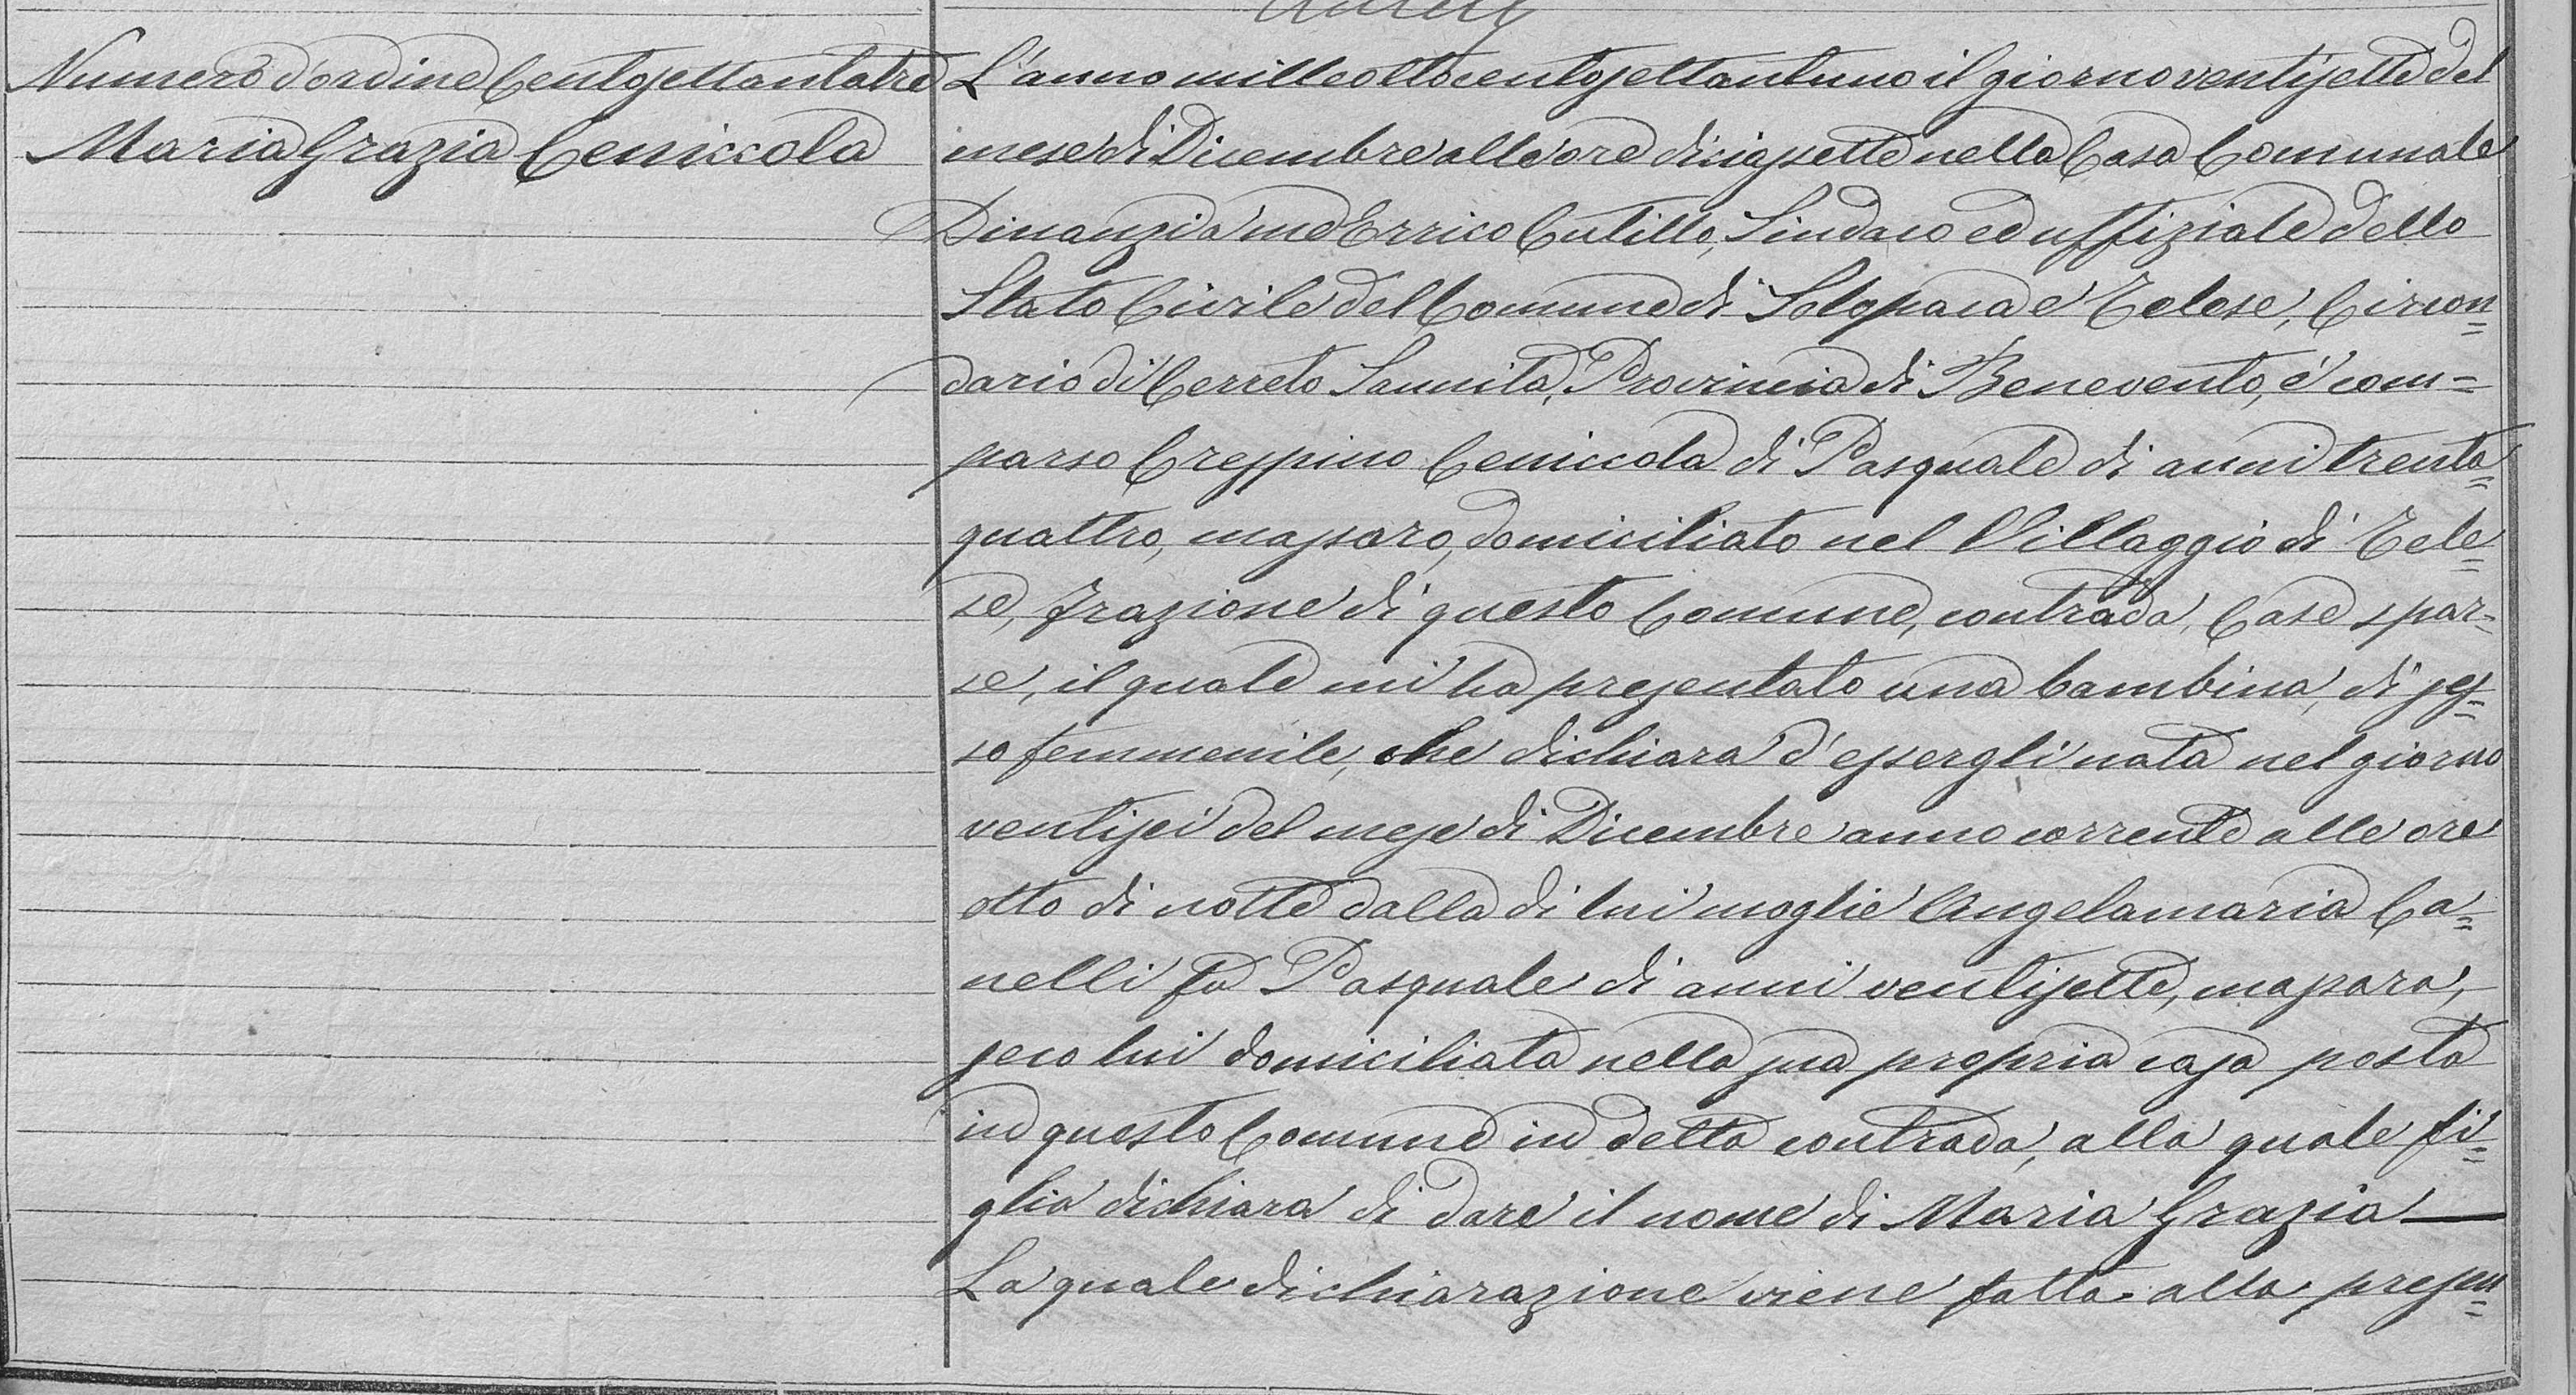 Numero d'ordine Centosettantatre
Maria Grazia Ceniccola
L'anno milleottocentosettantuno il giorno ventisette del
mese di Dicembre alle ore diciassette nella Casa Comunale
Dinanzi a me Errico Cutillo, Sindaco ed uffiziale dello
Stato Civile del Comune di Solopaca e Telese, Circon=
dario di Cerreto Sannita, Provincia di Benevento, è com=
parso Crespino Ceniccola di Pasquale di anni trenta=
quattro, massaro, domiciliato nel Villaggio di Tele=
se, frazione di questo Comune, contrada, Case spar=
se, il quale mi ha presentato una bambina, di ses=
so femmenile, che dichiara d'essergli nata nel giorno
ventisei del mese di Dicembre anno corrente alle ore
otto di notte dalla di lui moglie Angelamaria Ca=
nelli fu Pasquale di anni ventisette, massara,
seco lui domiciliata nella sua propria casa posta
in questo Comune in detta contrada, alla quale fi=
glia dichiara di dare il nome di Maria Grazia —
La quale dichiarazione viene fatta alla presen=